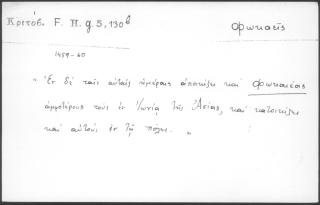 Κριτόβ. F. H. g. 5, 130ᵇ
Φωκαεῖς
1459-60
„ Ἐν δὲ ταῖς αὐταῖς ἡμέραις ἀποικίζει καὶ Φωκαέας
ἀμφοτέρους τοὺς ἐν Ἰωνίᾳ τῆς Ἀσίας, καὶ κατοικίζει
καὶ αὐτοὺς ἐν τῇ πόλει. „